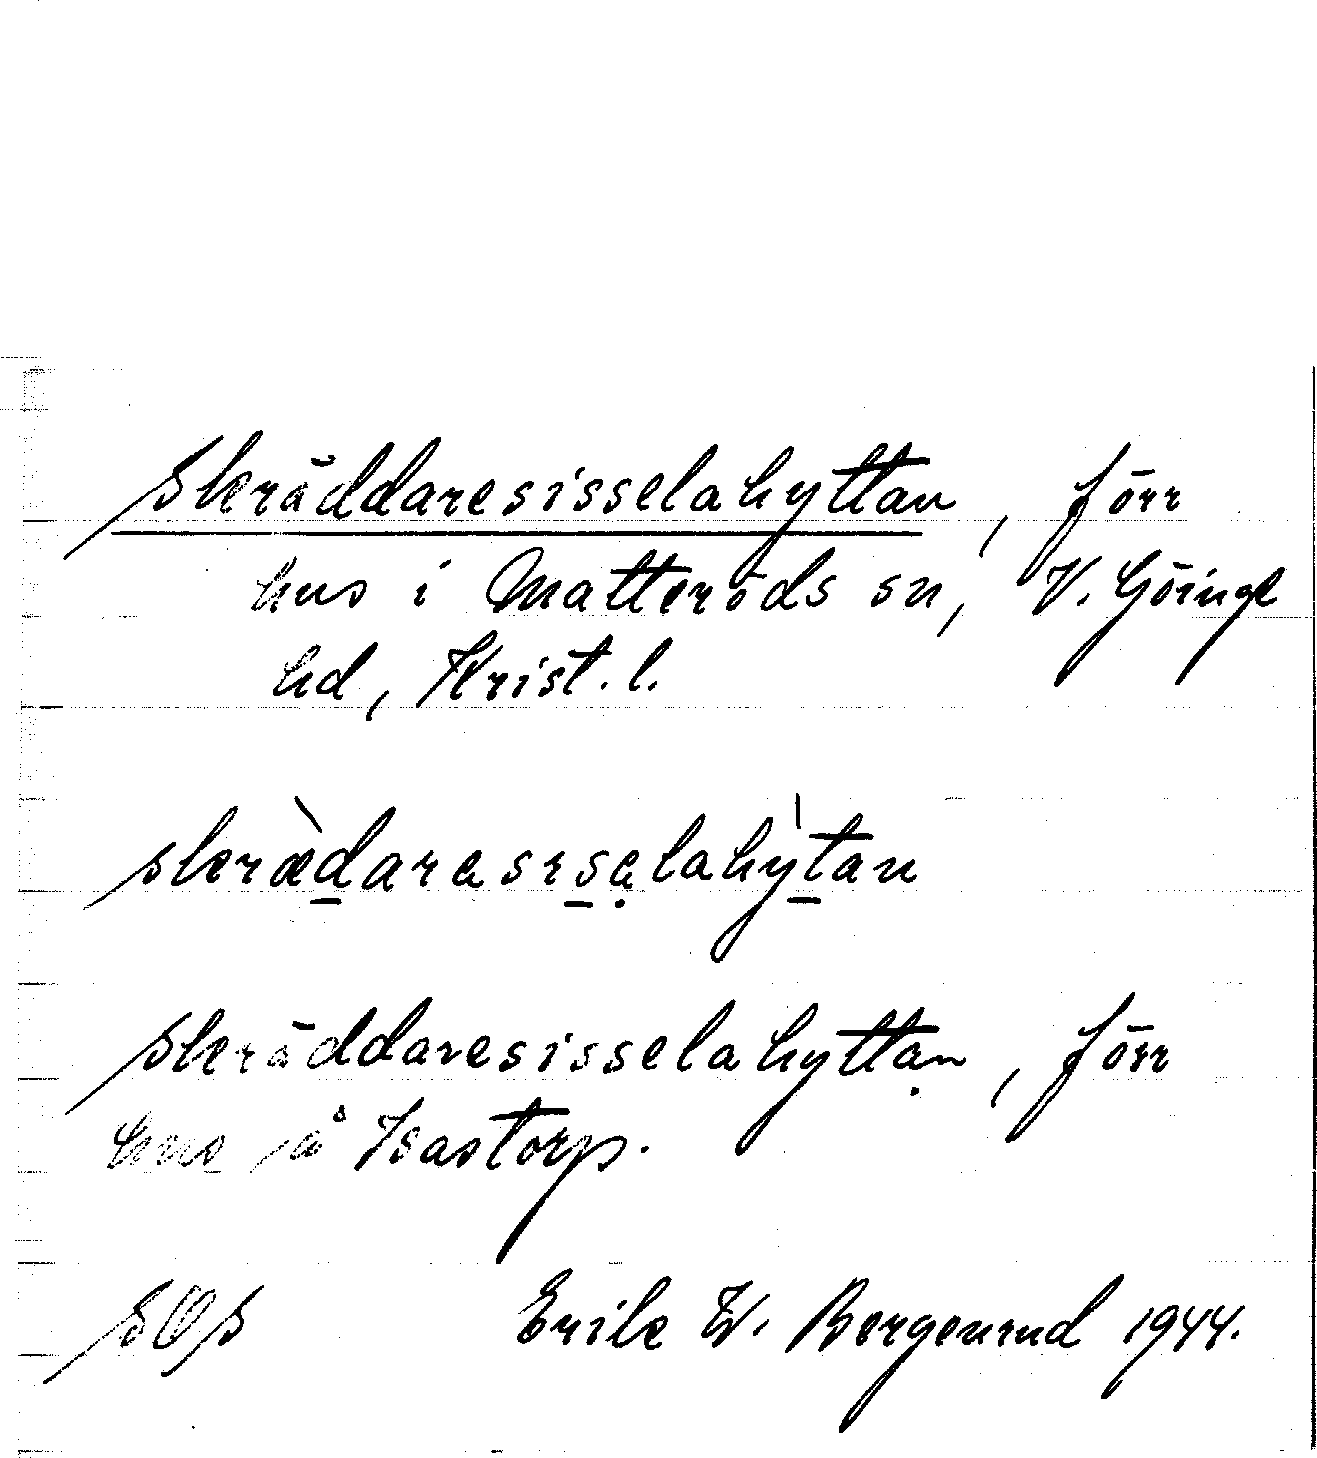 Skräddaresisselahyttan, förr
hus i Matteröds sn, V. Göinge
hd, Krist. l.
skræ̀d̲arasɪs̲ạlahỳt̲an
Skräddaresisselahyttạn, förr
hus å Isastorp.
SOS Erik W. Bergenrud 1944.